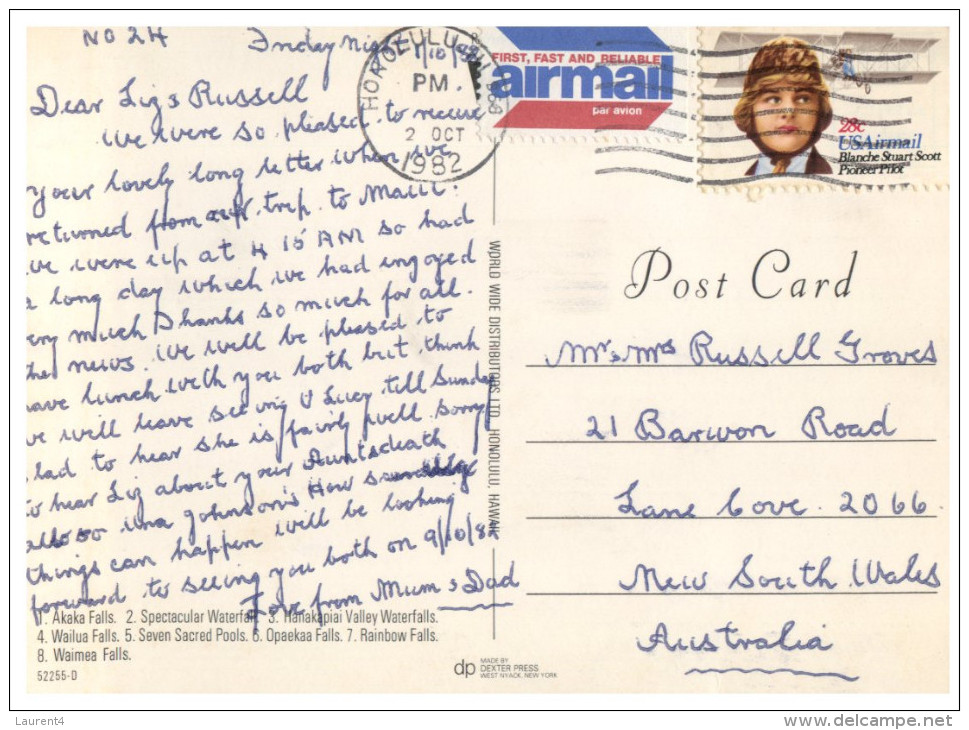 NO 24
Friday Night 1/10/82
Dear Liz & Russell
We were so pleased to receive
your lovely long letter when we
returned from our trip to Mauii.
we were up at 4 15 AM so had
a long day which we had enjoyed
very much Thanks so much for all
the news. We will be pleased to
have lunch with you both but think
we will leave seeing Lucy till Sunday
glad to hear she is fairly well sorry
to hear Liz about your Aunts death
also Una Johnson's How
things can happen will be looking
forward to seeing you both on 9/10/82
Love from Mum & Dad
1. Akaka Falls. 2. Spectacular Waterfall. 3. Hanakapiai Valley Waterfalls.
4. Wailua Falls. 5. Seven Sacred Pools. 6. Opaekaa Falls. 7. Rainbow Falls.
8. Waimea Falls.
52255-D
HONOLULU
PM
2 OCT
1982
FIRST, FAST AND RELIABLE
airmail
par avion
28c
USAirmail
Blanche Stuart Scott
Pioneer Pilot
WORLD WIDE DISTRIBUTORS LTD. HONOLULU, HAWAII
Post Card
Mr & Mrs Russell Groves
21 Barwon Road
Lane Cove. 2066
New South Wales
Australia
dp
MADE BY
DEXTER PRESS
WEST NYACK, NEW YORK
Laurent4
delcampe.net